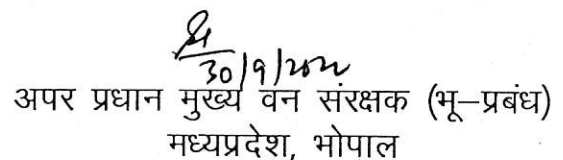 30/9/2022
अपर प्रधान मुख्य वन संरक्षक (भू–प्रबंध)
मध्यप्रदेश, भोपाल